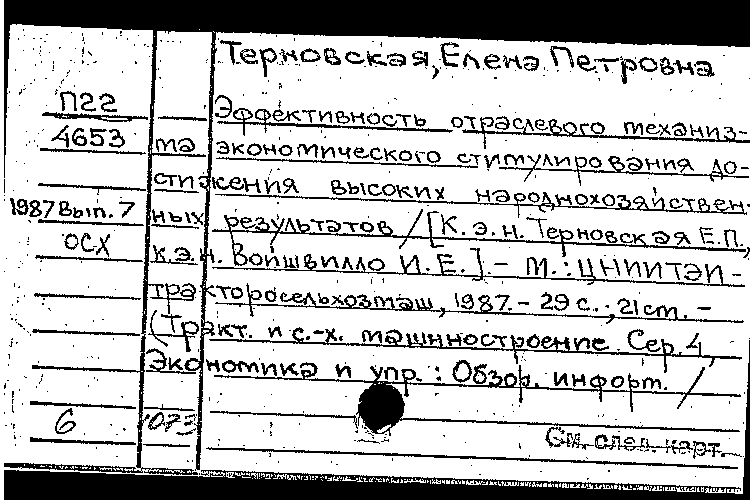 Терновская, Елена Петровна
П22
4653
1987 Вып. 7
ОСХ
Эффективность отраслевого механиз-
ма экономического стимулирования до-
стижения высоких народнохозяйствен-
ных результатов / [К. э. н. Терновская Е.П.,
к.э.н. Войшвилло И. Е.]. - М. : ЦНИИТЭИ-
тракторосельхозмаш, 1987. - 29 с. ; 21 см. -
(Тракт. и с.-х. машиностроение. Сер. 4,
Экономика и упр. : Обзор. информ. /
6
См. след. карт.